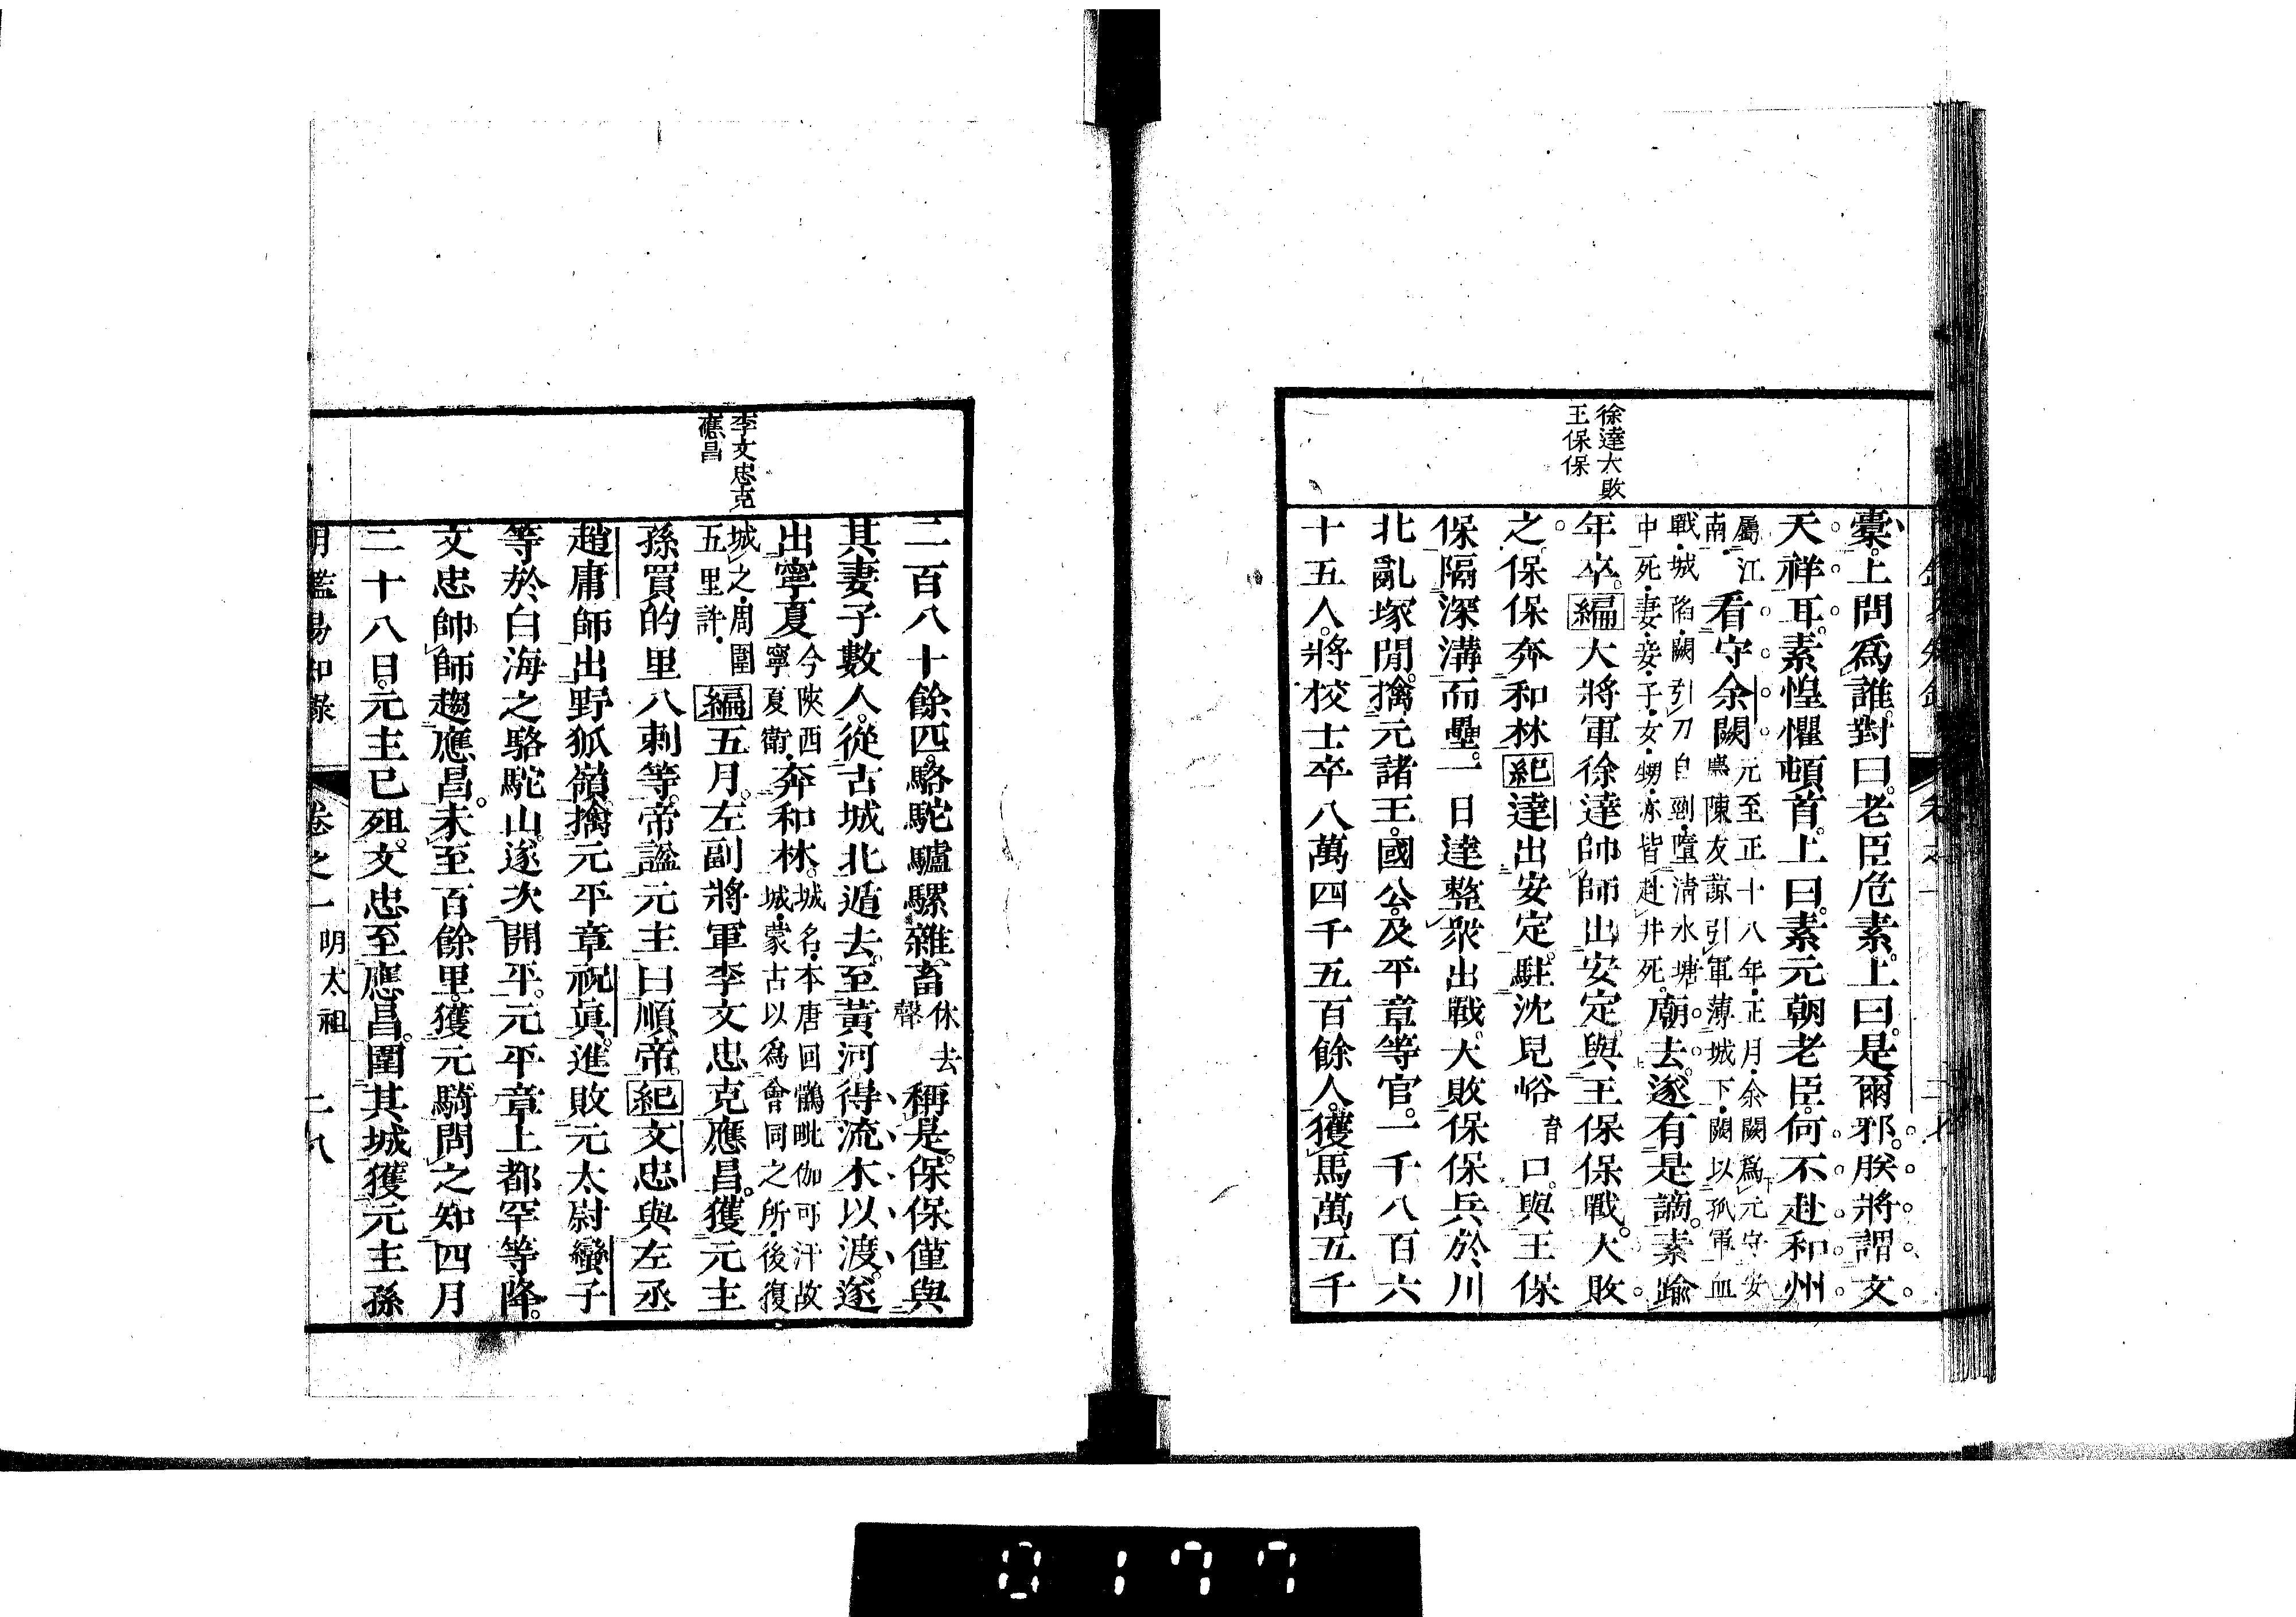 徐達大敗
王保保
橐。上問爲誰。對曰。老臣危素。上曰。是爾邪。朕將謂文
天祥耳。素惶懼頓首。上曰。素元朝老臣。何不赴和州
屬江
南。
看守余闕
元至正十八年。正月。余闕爲元守安
陳友諒引軍薄城下。闕以孤軍血
戰。城陷。闕引刀自剄。墮清水塘
中死。妻妾子女甥。亦皆赴井死。
廟去。遂有是謫。素踰
年卒。編大將軍徐達帥師出安定。與王保保戰。大敗
之。保保奔和林。紀達出安定。駐沈兒峪
育
口。與王保
保隔深溝而壘。一日達整衆出戰。大敗保保兵於川
北亂塚閒。擒元諸王。國公。及平章等官。一千八百六
十五人。將校士卒八萬四千五百餘人。獲馬萬五千
李文忠克
應昌
二百八十餘匹。駱駝驢騾雜畜
休去
聲
稱是。保保僅與
其妻子數人。從古城北遁去。至黃河得流木以渡。遂
出寧夏
今陝西
寧夏衛。
奔和林。
城名。本唐回鶻毗伽可汗故
城。蒙古以爲會同之所。後復
城之。周圍
五里許。
編五月。左副將軍李文忠克應昌。獲元主
孫買的里八剌等。帝謚元主曰順帝。紀文忠與左丞
趙庸師出野狐嶺。擒元平章祝真。進敗元太尉蠻子
等於白海之駱駝山。遂次開平。元平章上都罕等降。
文忠帥師趨應昌。未至百餘里。獲元騎問之。知四月
二十八日。元主已殂。文忠至應昌。圍其城。獲元主孫
明鑑易知錄 卷之一 明太祖 二八
0177